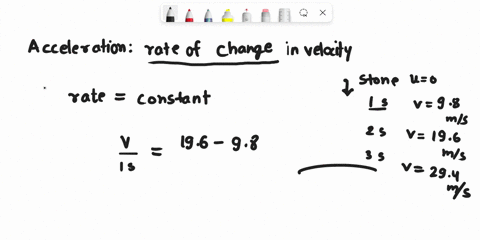 Acceleration: rate of change in velocity
rate = constant
V/1s = 19.6 - 9.8
↓ Stone u=0
1s v = 9.8 m/s
2s v = 19.6 m/s
3s v = 29.4 m/s